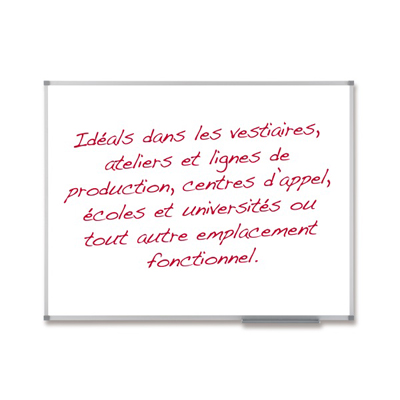 Idéals dans les vestiaires,
ateliers et lignes de
production, centres d'appel,
écoles et universités ou
tout autre emplacement
fonctionnel.